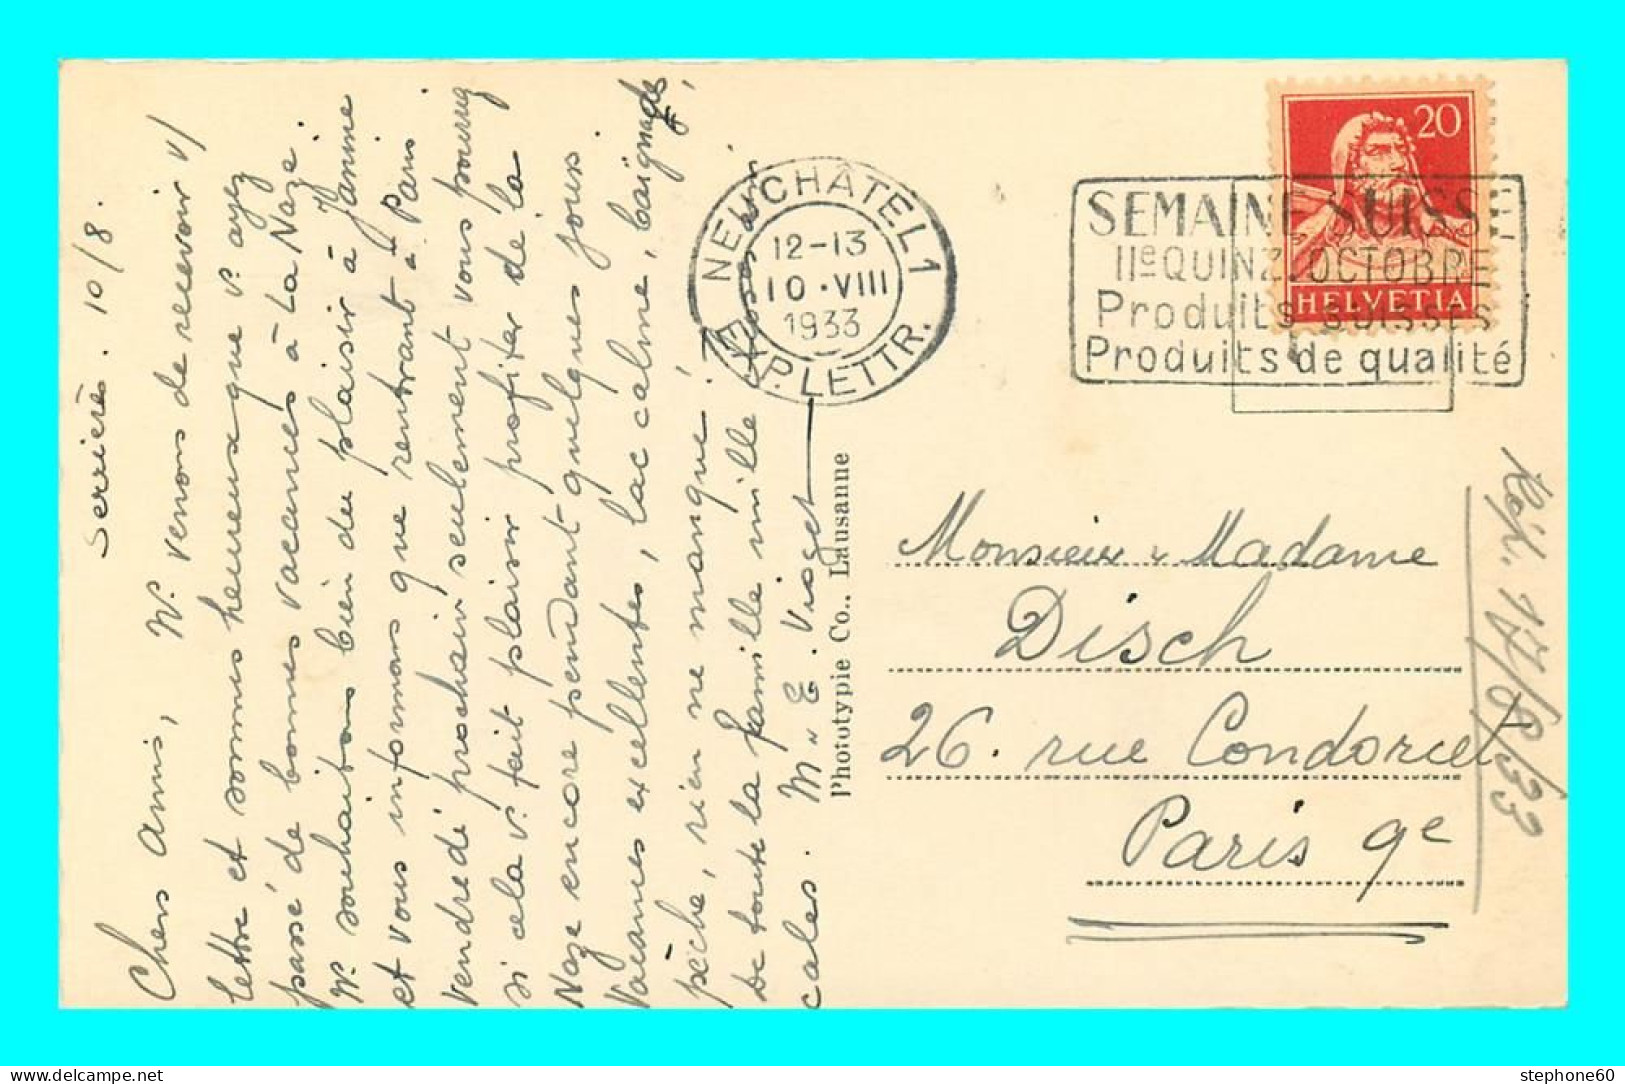 Serrières. 10/8.
Chers Amis, N. venons de recevoir v/
lettre et sommes heureux que v. ayez
passé de bonnes vacances à La Naze.
N. souhaitons bien du plaisir à Janine
et vous informons que rentrant à Paris
Vendredi prochain seulement vous pourrez
si cela v. fait plaisir profiter de la
Naze encore pendant quelques jours
Vacances excellentes, lac calme, baignades,
pêche, rien ne manque!
de toute la famille mille
cales. M. E. Vioget
NEUCHÂTEL 1
12-13
10·VIII
1933
EXP. LETTR.
SEMAINE SUISSE
IIe QUINZ. OCTOBRE
Produits suisses
Produits de qualité
20
HELVETIA
Phototypie Co., Lausanne
Monsieur & Madame
Disch
26. rue Condorcet
Paris 9e
Réf. 17/8/33
stephone60